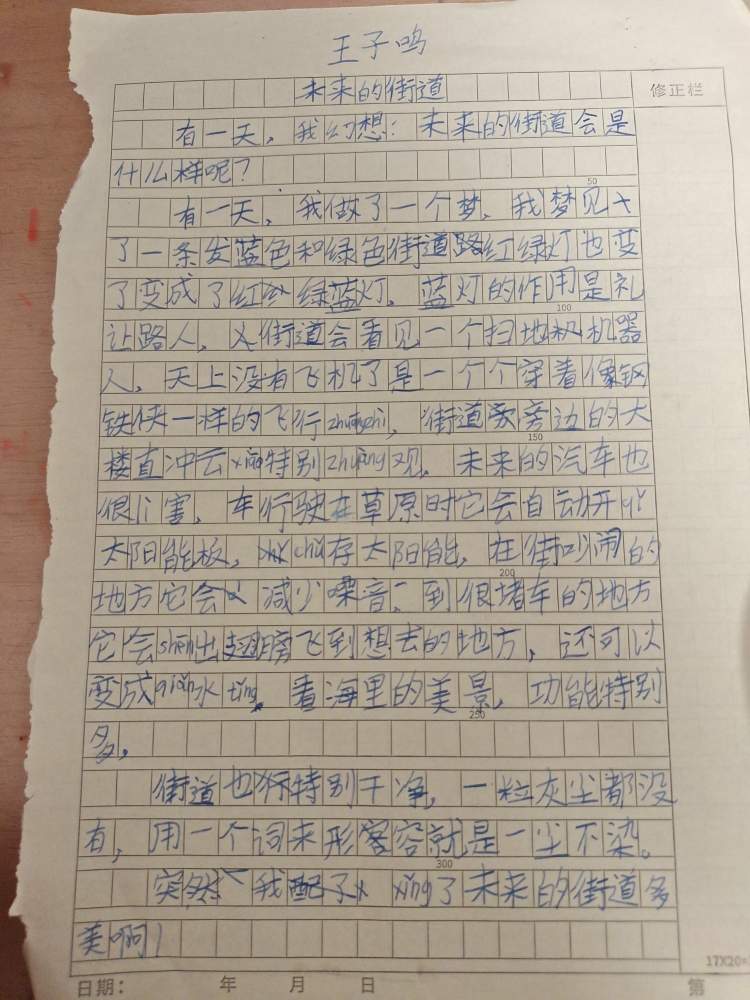 王子鸣
未来的街道
修正栏
有一天，我幻想：未来的街道会是
什么样呢？
50
有一天，我做了一个梦，我梦见
了一条发蓝色和绿色街道路红绿灯也变
了变成了红绿蓝灯，蓝灯的作用是礼
100
让路人，街道会看见一个扫地机器
人，天上没有飞机了是一个个穿着像钢
铁侠一样的飞行zhuangzhi，街道旁边的大
150
楼直冲云xiāo特别zhuàng观，未来的汽车也
很厉害，车行驶在草原时它会自动开
太阳能板，chǔ存太阳能，在街吵闹的
200
地方它会减少噪音，到很堵车的地方
它会shēn出翅膀飞到想去的地方，还可以
变成qián水tǐng，看海里的美景，功能特别
250
多，
街道也特别干净，一粒灰尘都没
有，用一个词来形容就是一尘不染。
300
突然，我xǐng了未来的街道多
美啊！
17X20=
日期： 年 月 日 第